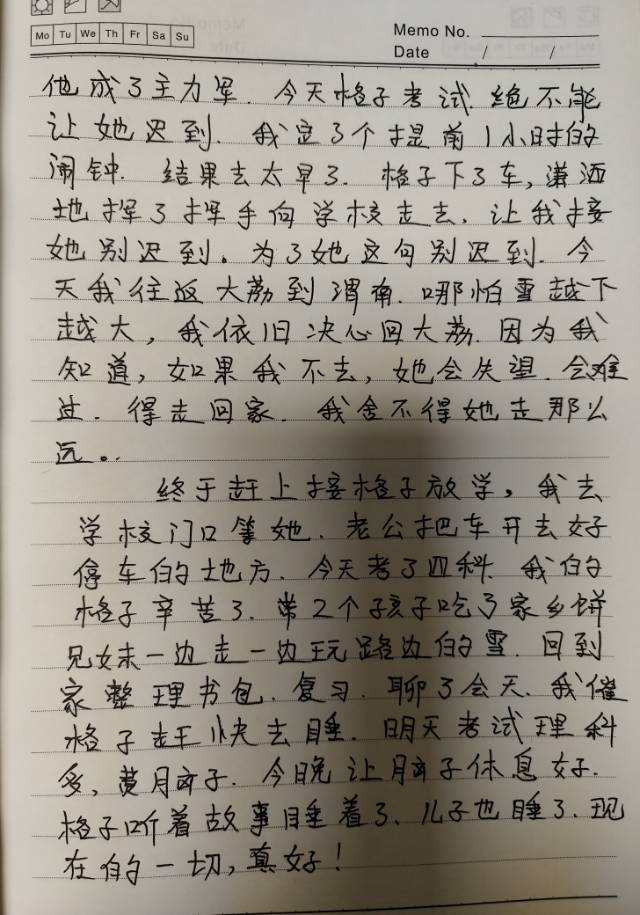 Mo Tu We Th Fr Sa Su
Memo No.
Date / /
他成了主力军. 今天格子考试. 绝不能
让她迟到. 我定了个提前1小时的
闹钟. 结果去太早了. 格子下了车, 潇洒
地挥了挥手向学校走去. 让我接
她别迟到。为了她这句别迟到. 今
天我往返大荔到渭南. 哪怕雪越下
越大, 我依旧决心回大荔. 因为我
知道, 如果我不去, 她会失望. 会难
过. 得走回家. 我舍不得她走那么
远。.
终于赶上接格子放学, 我去
学校门口等她. 老公把车开去好
停车的地方. 今天考了四科. 我的
格子辛苦了. 带2个孩子吃了家乡饼
兄妹一边走一边玩路边的雪. 回到
家整理书包. 复习. 聊了会天. 我催
格子赶快去睡. 明天考试理科
多, 费脑子. 今晚让脑子休息好.
格子听着故事睡着了、儿子也睡了. 现
在的一切, 真好!